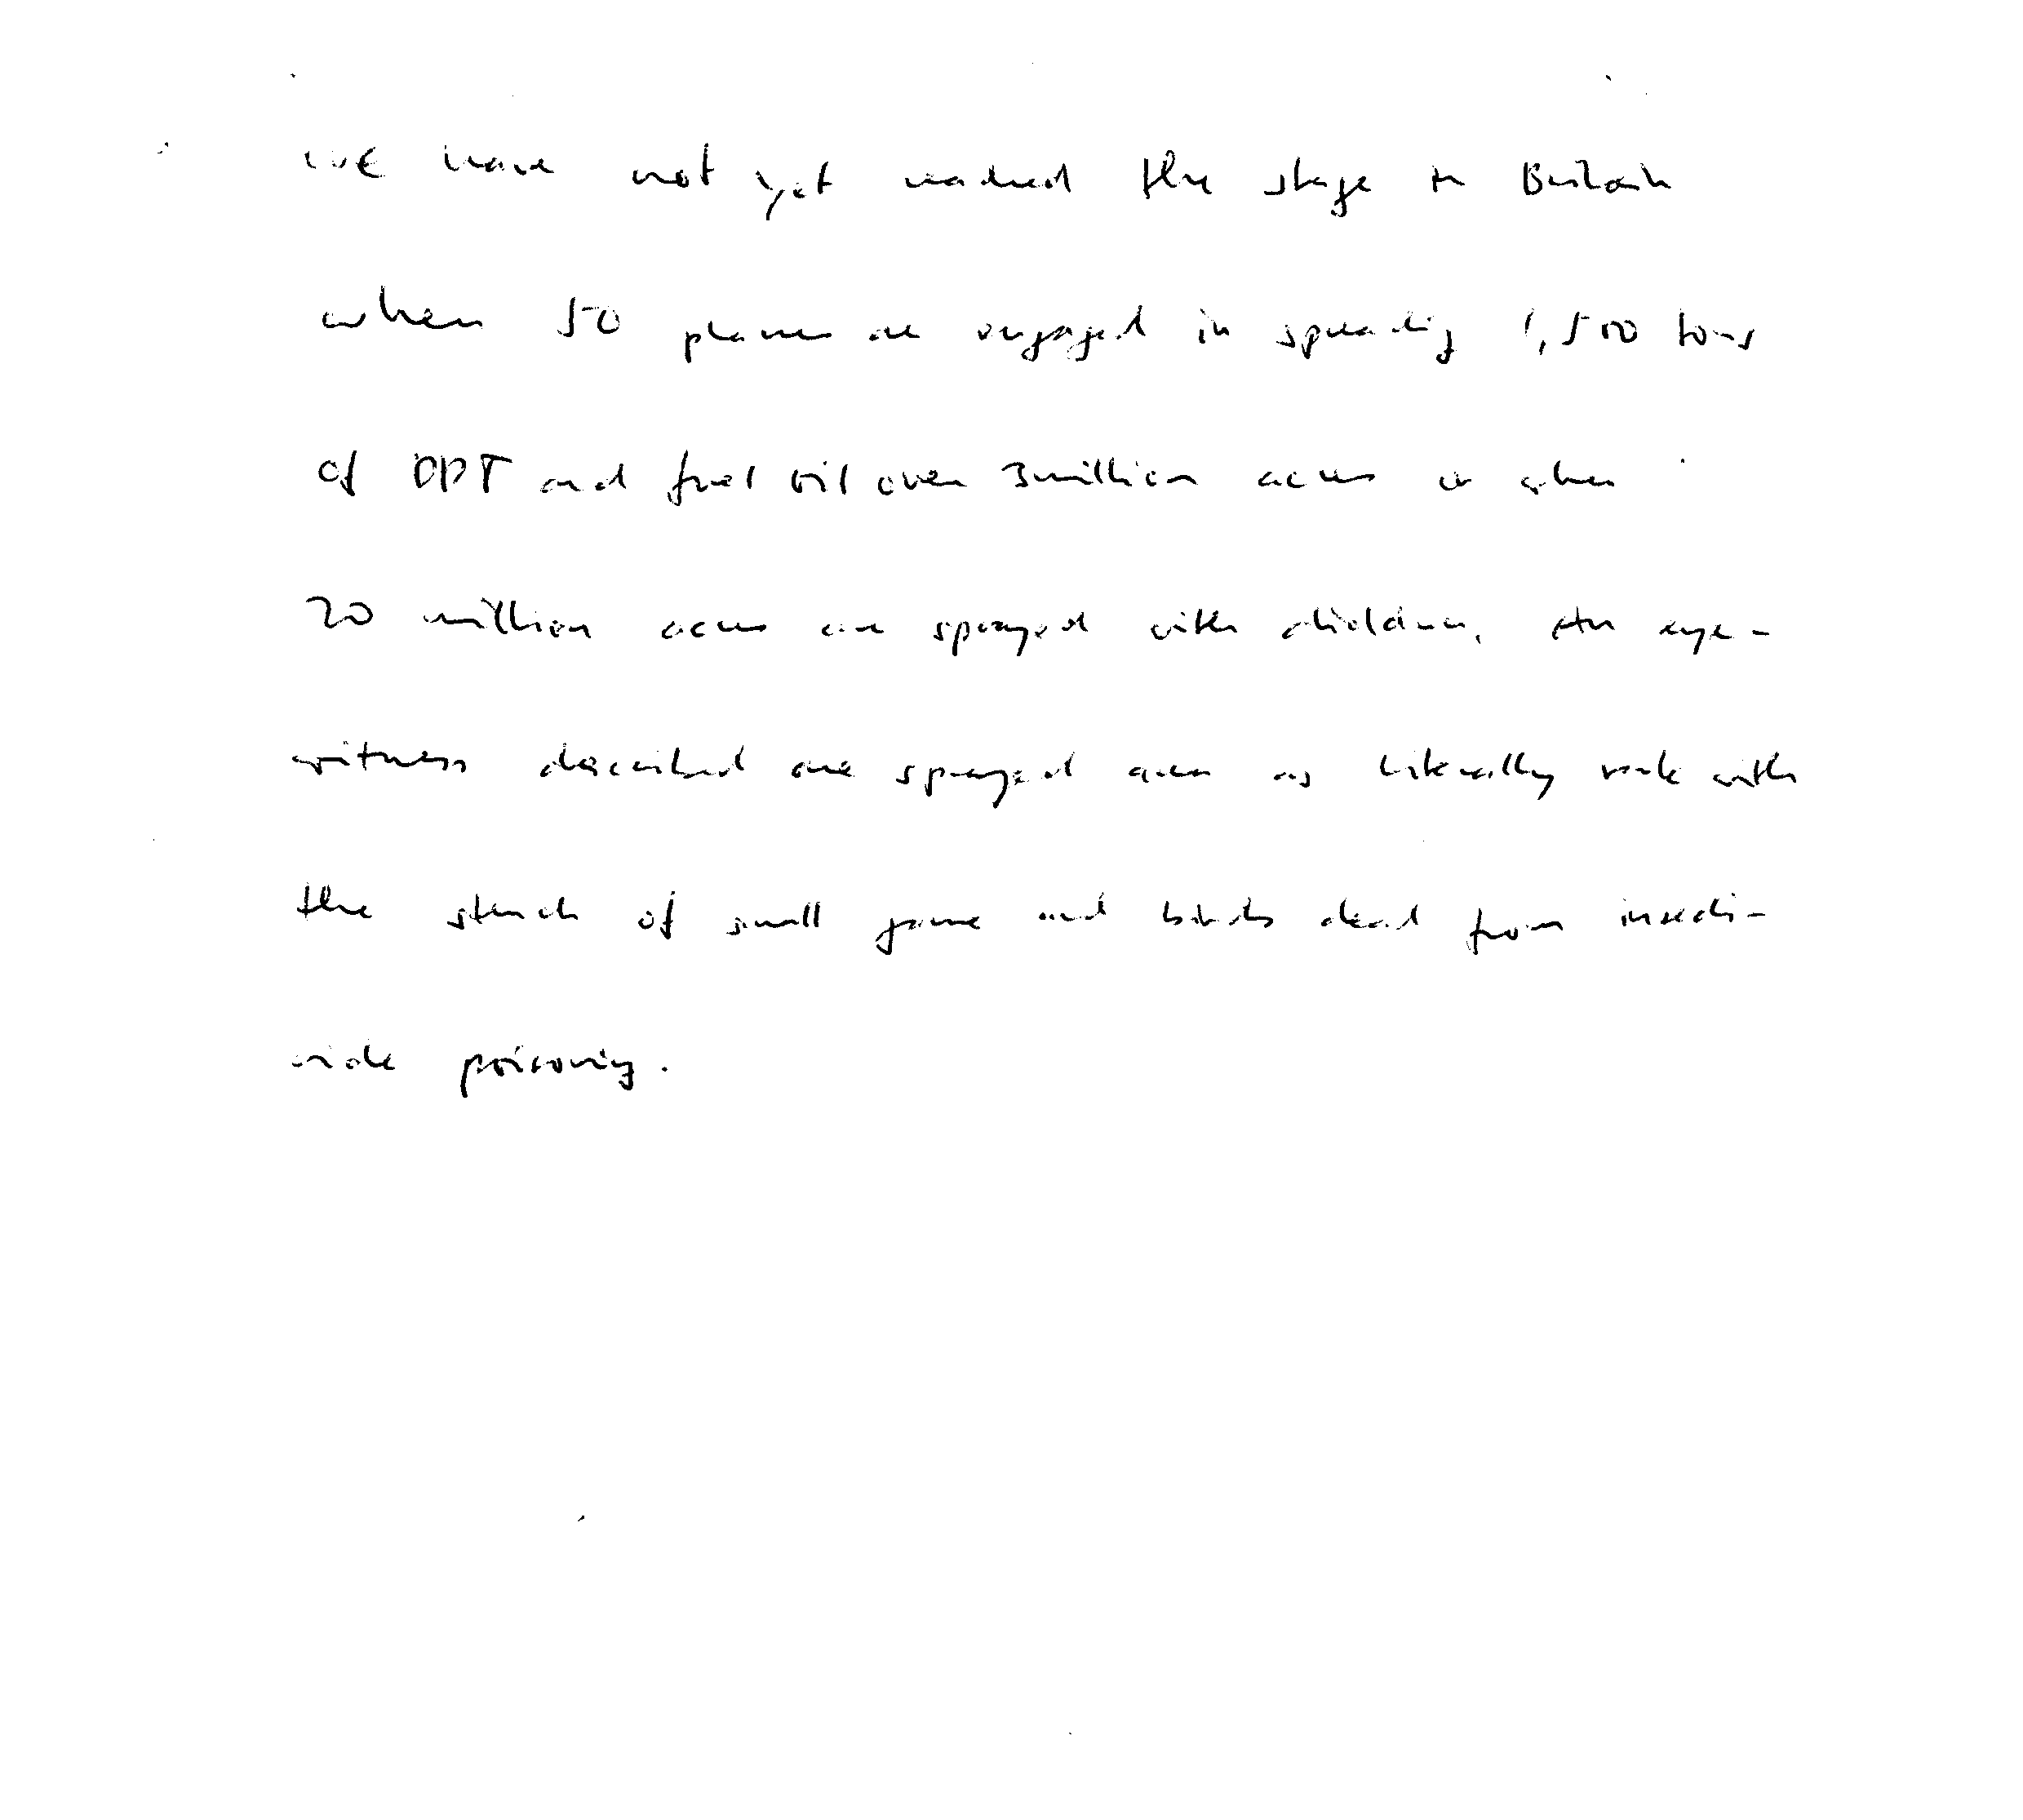 we have not yet reached the stage in Britain
when 50 planes are engaged in spreading 1,500 tons
of DDT and fuel oil over 3 million acres or when
20 million acres are sprayed with dieldrin. An eye-
witness described one sprayed area as literally rank with
the stench of small game and birds dead from insecti-
cide poisoning.